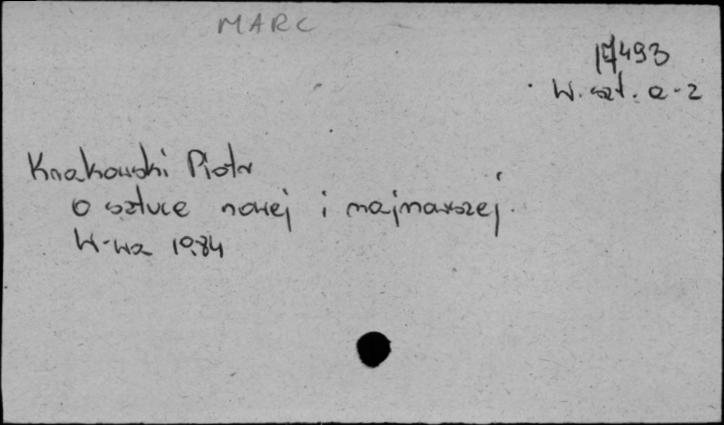 MARC
17493
W. szt. a-2
Krakowski Piotr
O sztuce nowej i najnowszej.
W-wa 1984